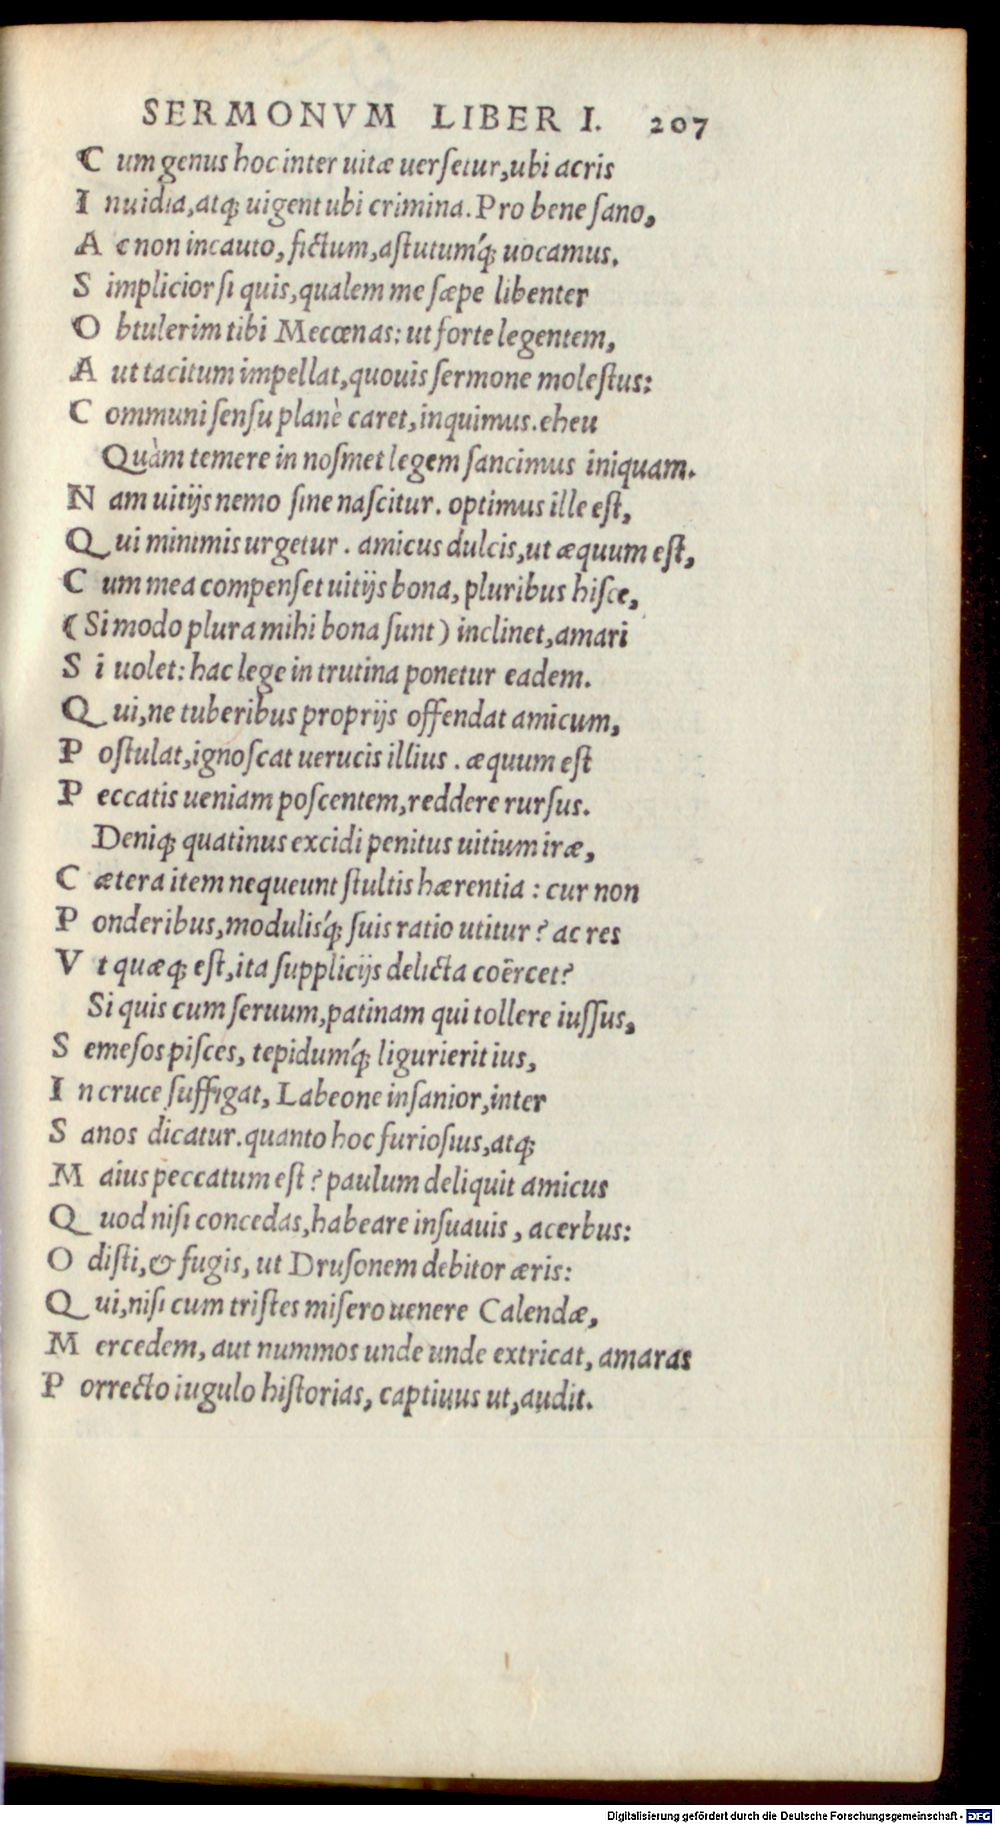 SERMONVM LIBER I. 207
C um genus hoc inter uitæ uerſetur,ubi acris
I nuidia,atq; uigent ubi crimina. Pro bene ſano,
A c non incauto, fictum,aſtutumq́; uocamus.
S implicior ſi quis,qualem me ſæpe libenter
O btulerim tibi Mecœnas: ut forte legentem,
A ut tacitum impellat,quouis ſermone moleſtus:
C ommuni ſenſu planè caret,inquimus.eheu
Quàm temere in noſmet legem ſancimus iniquam.
N am uitijs nemo ſine naſcitur. optimus ille eſt,
Q ui minimis urgetur. amicus dulcis,ut æquum eſt,
C um mea compenſet uitijs bona, pluribus hiſce,
(Si modo plura mihi bona ſunt) inclinet,amari
S i uolet: hac lege in trutina ponetur eadem.
Q ui,ne tuberibus proprijs offendat amicum,
P oſtulat,ignoſcat uerucis illius. æquum eſt
P eccatis ueniam poſcentem,reddere rurſus.
Deniq; quatinus excidi penitus uitium iræ,
C ætera item nequeunt ſtultis hærentia: cur non
P onderibus,modulisq́; ſuis ratio utitur? ac res
V t quæq; eſt,ita ſupplicijs delicta coërcet?
Si quis cum ſeruum,patinam qui tollere iuſſus,
S emeſos piſces, tepidumq́; ligurierit ius,
I n cruce ſuffigat, Labeone inſanior,inter
S anos dicatur.quanto hoc furioſius,atq;
M aius peccatum eſt? paulum deliquit amicus
Q uod niſi concedas,habeare inſuauis, acerbus:
O diſti,& fugis, ut Druſonem debitor æris:
Q ui,niſi cum triſtes miſero uenere Calendæ,
M ercedem, aut nummos unde unde extricat, amaras
P orrecto iugulo hiſtorias, captiuus ut,audit.
Digitalisierung gefördert durch die Deutsche Forschungsgemeinschaft - DFG